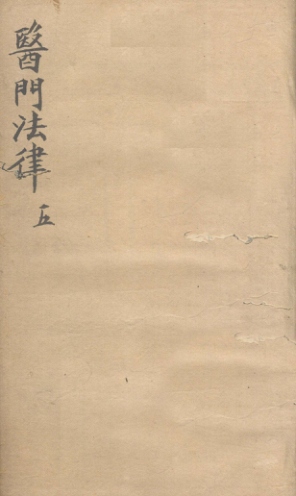 醫門法律
五